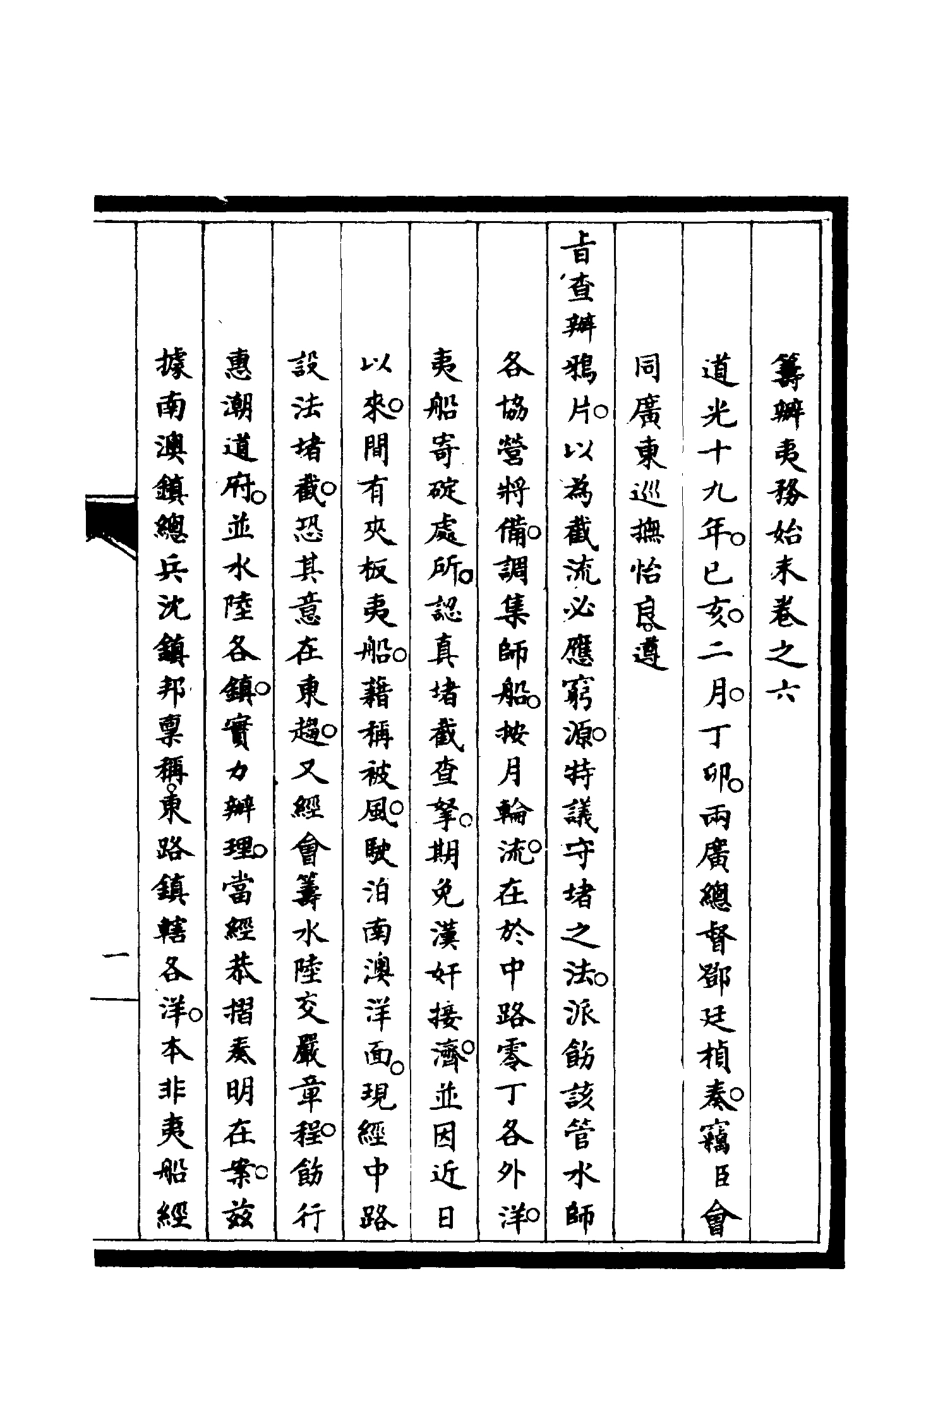 籌辦夷務始末卷之六
道光十九年。己亥。二月。丁卯。兩廣總督鄧廷楨奏。竊臣會
同廣東巡撫怡良。遵
旨查辦鴉片。以為截流必應窮源。特議守堵之法。派飭該管水師
各協營將備。調集師船。按月輪流。在於中路零丁各外洋。
夷船寄碇處所。認真堵截查拏。期免漢奸接濟。並因近日
以來。間有夾板夷船。藉稱被風。駛泊南澳洋面。現經中路
設法堵截。恐其意在東趨。又經會籌水陸交嚴章程。飭行
惠潮道府。並水陸各鎮。實力辦理。當經恭摺奏明在案。茲
據南澳鎮總兵沈鎮邦稟稱。東路鎮轄各洋。本非夷船經
一